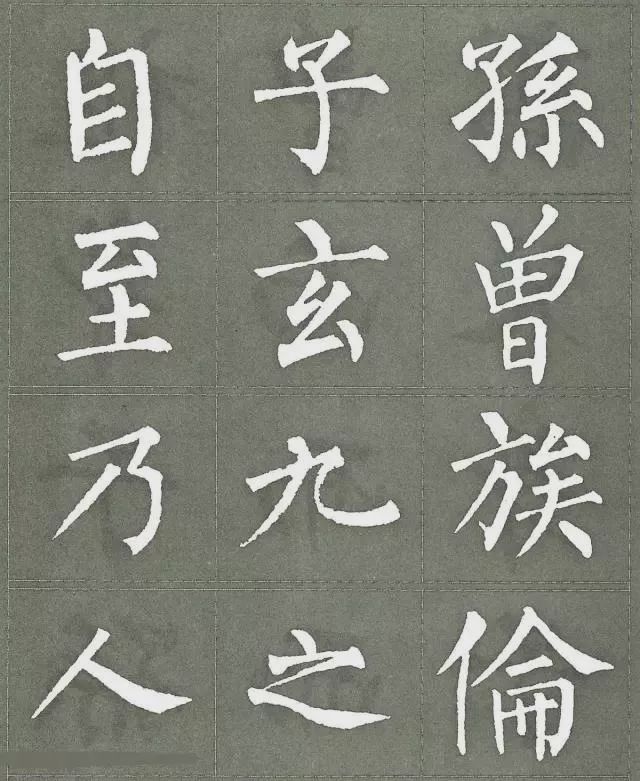 自子孫
至玄曾
乃九族
人之倫